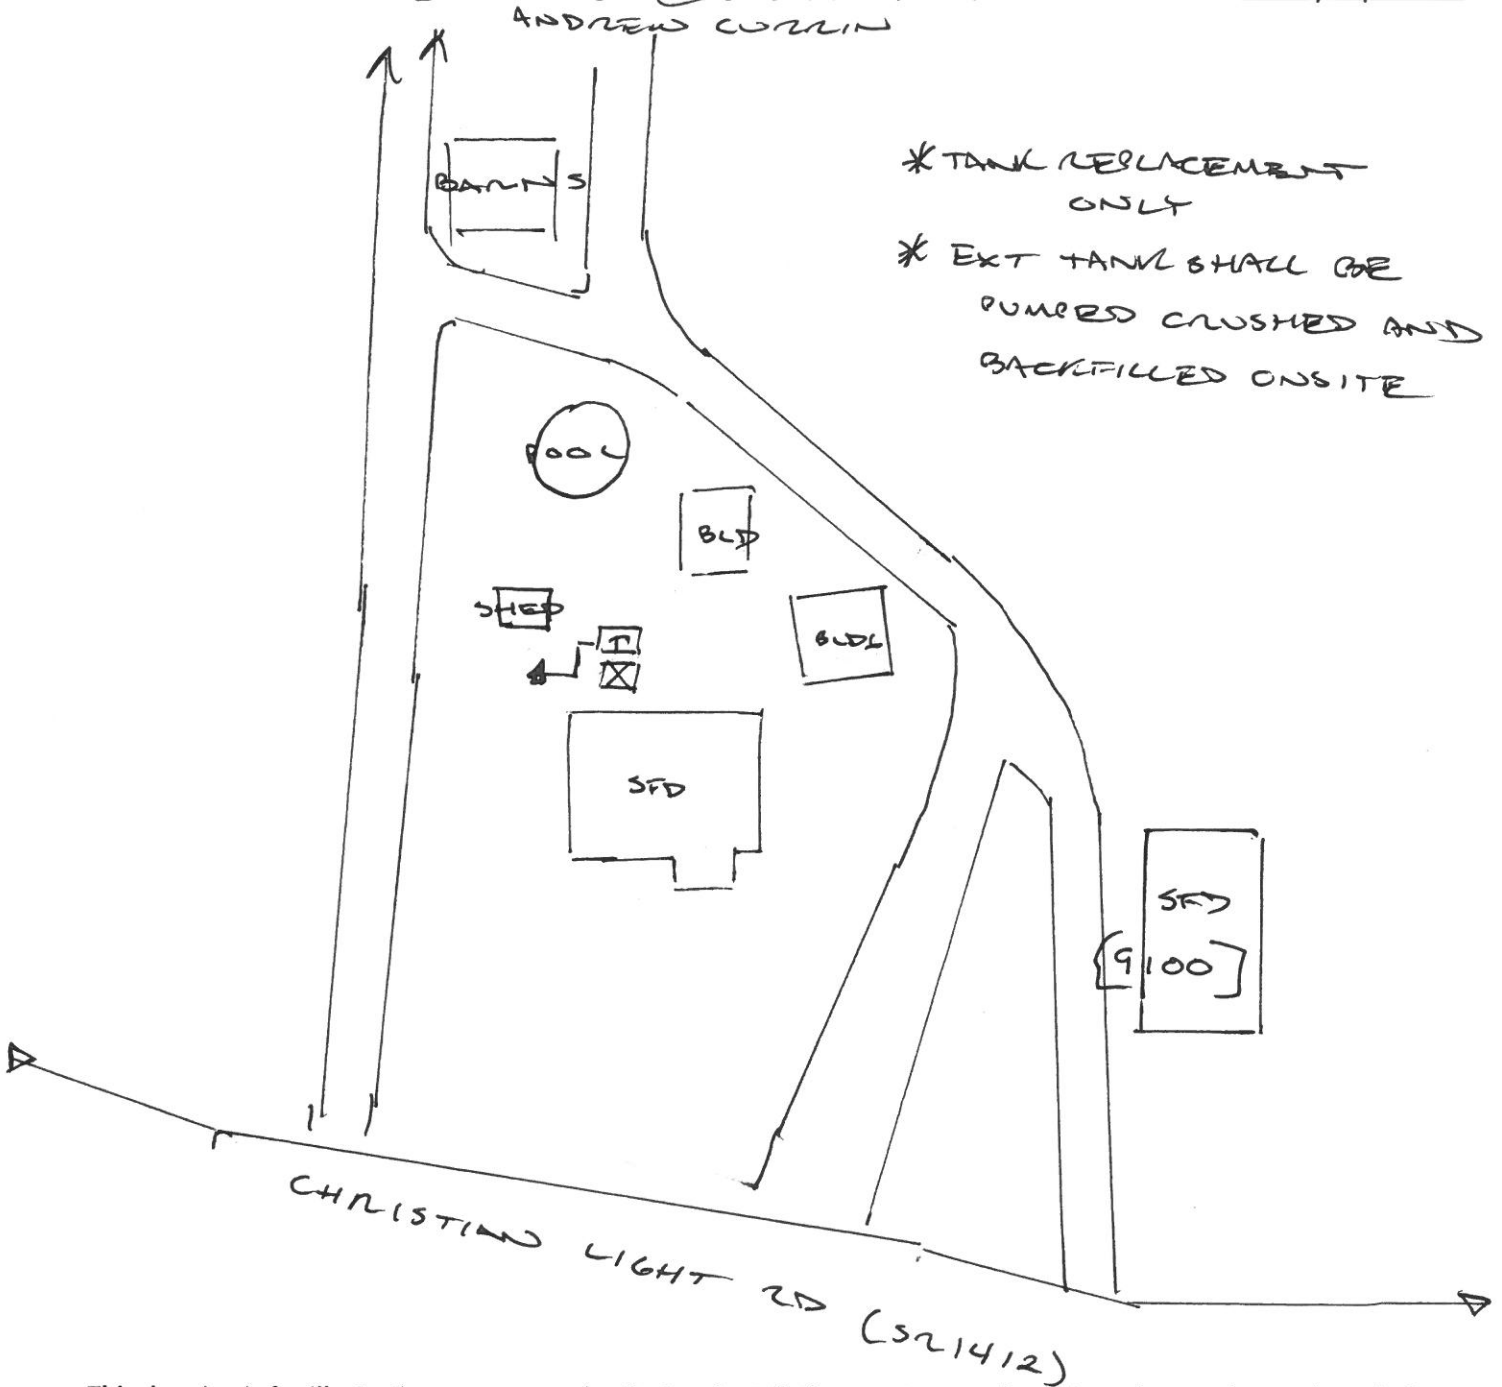 ANDREW CURRIN
* TANK REPLACEMENT
ONLY
* EXT TANK SHALL BE
PUMPED CRUSHED AND
BACKFILLED ONSITE
BARNS
POOL
BLD
SHED
T
BLDG
SFD
SFD
[9100]
CHRISTIAN LIGHT RD (SR1412)